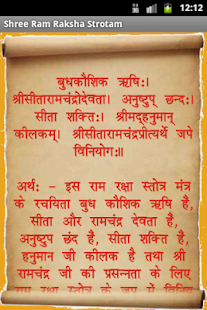 12:12
Shree Ram Raksha Strotam
बुधकौशिक ऋषिः।
श्रीसीतारामचंद्रोदेवता। अनुष्टुप् छन्दः।
सीता शक्तिः। श्रीमद्‌हनुमान्
कीलकम्। श्रीसीतारामचंद्रप्रीत्यर्थे जपे
विनियोगः॥
अर्थ: - इस राम रक्षा स्तोत्र मंत्र
के रचयिता बुध कौशिक ऋषि है,
सीता और रामचंद्र देवता है,
अनुष्टुप छंद है, सीता शक्ति है,
हनुमान जी कीलक है तथा श्री
रामचंद्र जी की प्रसन्नता के लिए
राम रक्षा स्तोत्र के जप में विनियोग